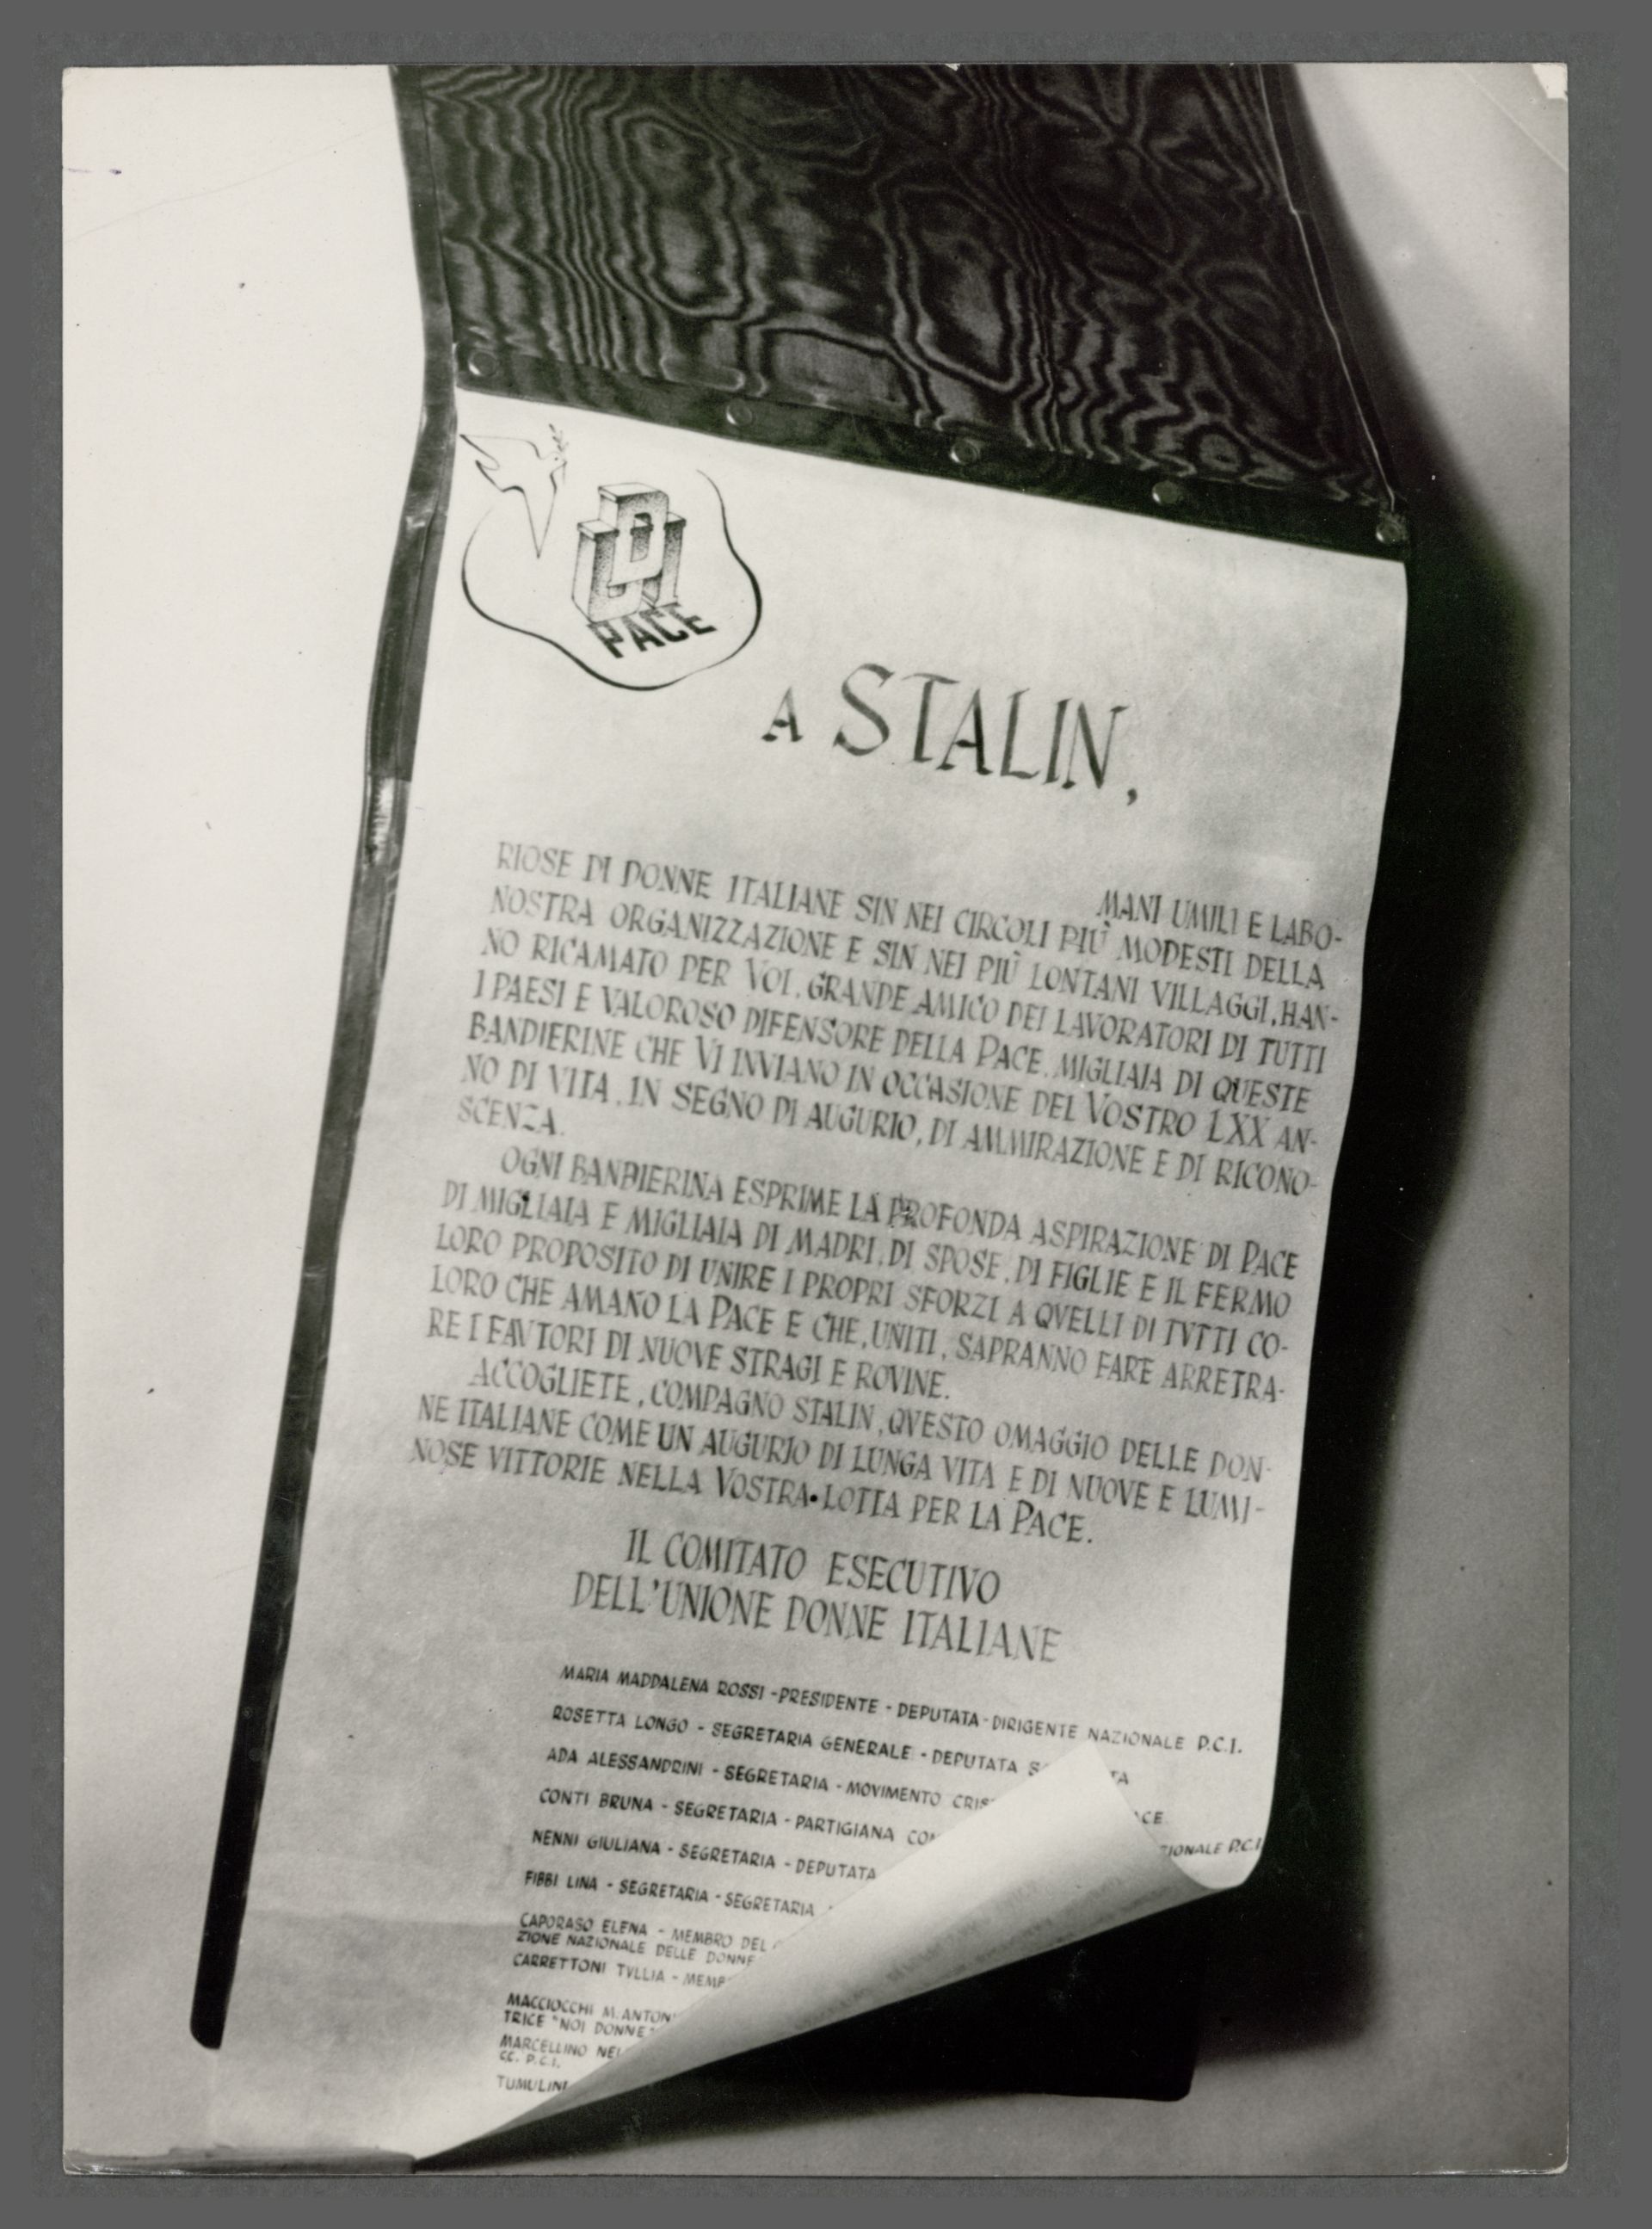 UDI
PACE
A STALIN,
MANI UMILI E LABO-
RIOSE DI DONNE ITALIANE SIN NEI CIRCOLI PIÙ MODESTI DELLA
NOSTRA ORGANIZZAZIONE E SIN NEI PIÙ LONTANI VILLAGGI, HAN-
NO RICAMATO PER VOI, GRANDE AMICO DEI LAVORATORI DI TUTTI
I PAESI E VALOROSO DIFENSORE DELLA PACE, MIGLIAIA DI QUESTE
BANDIERINE CHE VI INVIANO IN OCCASIONE DEL VOSTRO LXX AN-
NO DI VITA, IN SEGNO DI AUGURIO, DI AMMIRAZIONE E DI RICONO-
SCENZA.
OGNI BANDIERINA ESPRIME LA PROFONDA ASPIRAZIONE DI PACE
DI MIGLIAIA E MIGLIAIA DI MADRI, DI SPOSE, DI FIGLIE E IL FERMO
LORO PROPOSITO DI UNIRE I PROPRI SFORZI A QVELLI DI TVTTI CO-
LORO CHE AMANO LA PACE E CHE, UNITI, SAPRANNO FARE ARRETRA-
RE I FAVTORI DI NUOVE STRAGI E ROVINE.
ACCOGLIETE, COMPAGNO STALIN, QVESTO OMAGGIO DELLE DON-
NE ITALIANE COME UN AUGURIO DI LUNGA VITA E DI NUOVE E LUMI-
NOSE VITTORIE NELLA VOSTRA LOTTA PER LA PACE.
IL COMITATO ESECUTIVO
DELL'UNIONE DONNE ITALIANE
MARIA MADDALENA ROSSI - PRESIDENTE - DEPUTATA - DIRIGENTE NAZIONALE P.C.I.
ROSETTA LONGO - SEGRETARIA GENERALE - DEPUTATA S TA
ADA ALESSANDRINI - SEGRETARIA - MOVIMENTO CRIS ACE
CONTI BRUNA - SEGRETARIA - PARTIGIANA COM ZIONALE P.C.I
NENNI GIULIANA - SEGRETARIA - DEPUTATA
FIBBI LINA - SEGRETARIA - SEGRETARIA
CAPORASO ELENA - MEMBRO DEL
ZIONE NAZIONALE DELLE DONNE
CARRETTONI TVLLIA - MEMB
MACCIOCCHI M. ANTON
TRICE "NOI DONNE"
MARCELLINO NEL
CC. P.C.I.
TUMULINI